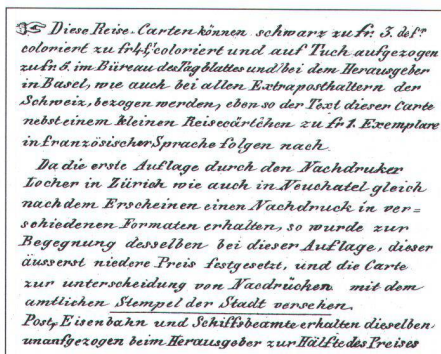 Diese Reise-Carten können schwarz zu fr. 3. desgl.
coloriert zu fr 4½ coloriert und auf Tuch aufgezogen
zu fr 6. im Büreau des Tagblattes und bei dem Herausgeber
in Basel, wie auch bei allen Extraposthaltern der
Schweiz, bezogen werden, eben so der Text dieser Carte
nebst einem kleinen Reisecärtchen zu fr 1. Exemplare
in französischer Sprache folgen nach.
Da die erste Auflage durch den Nachdruker
Locher in Zürich wie auch in Neuchatel gleich
nach dem Erscheinen einen Nachdruck in ver=
schiedenen Formaten erhalten, so wurde zur
Begegnung desselben bei dieser Auflage, dieser
äusserst niedere Preis festgesetzt, und die Carte
zur unterscheidung von Nacdrücken mit dem
amtlichen Stempel der Stadt versehen.
Post, Eisenbahn und Schiffsbeamte erhalten dieselben
unaufgezogen beim Herausgeber zur Hälfte des Preises